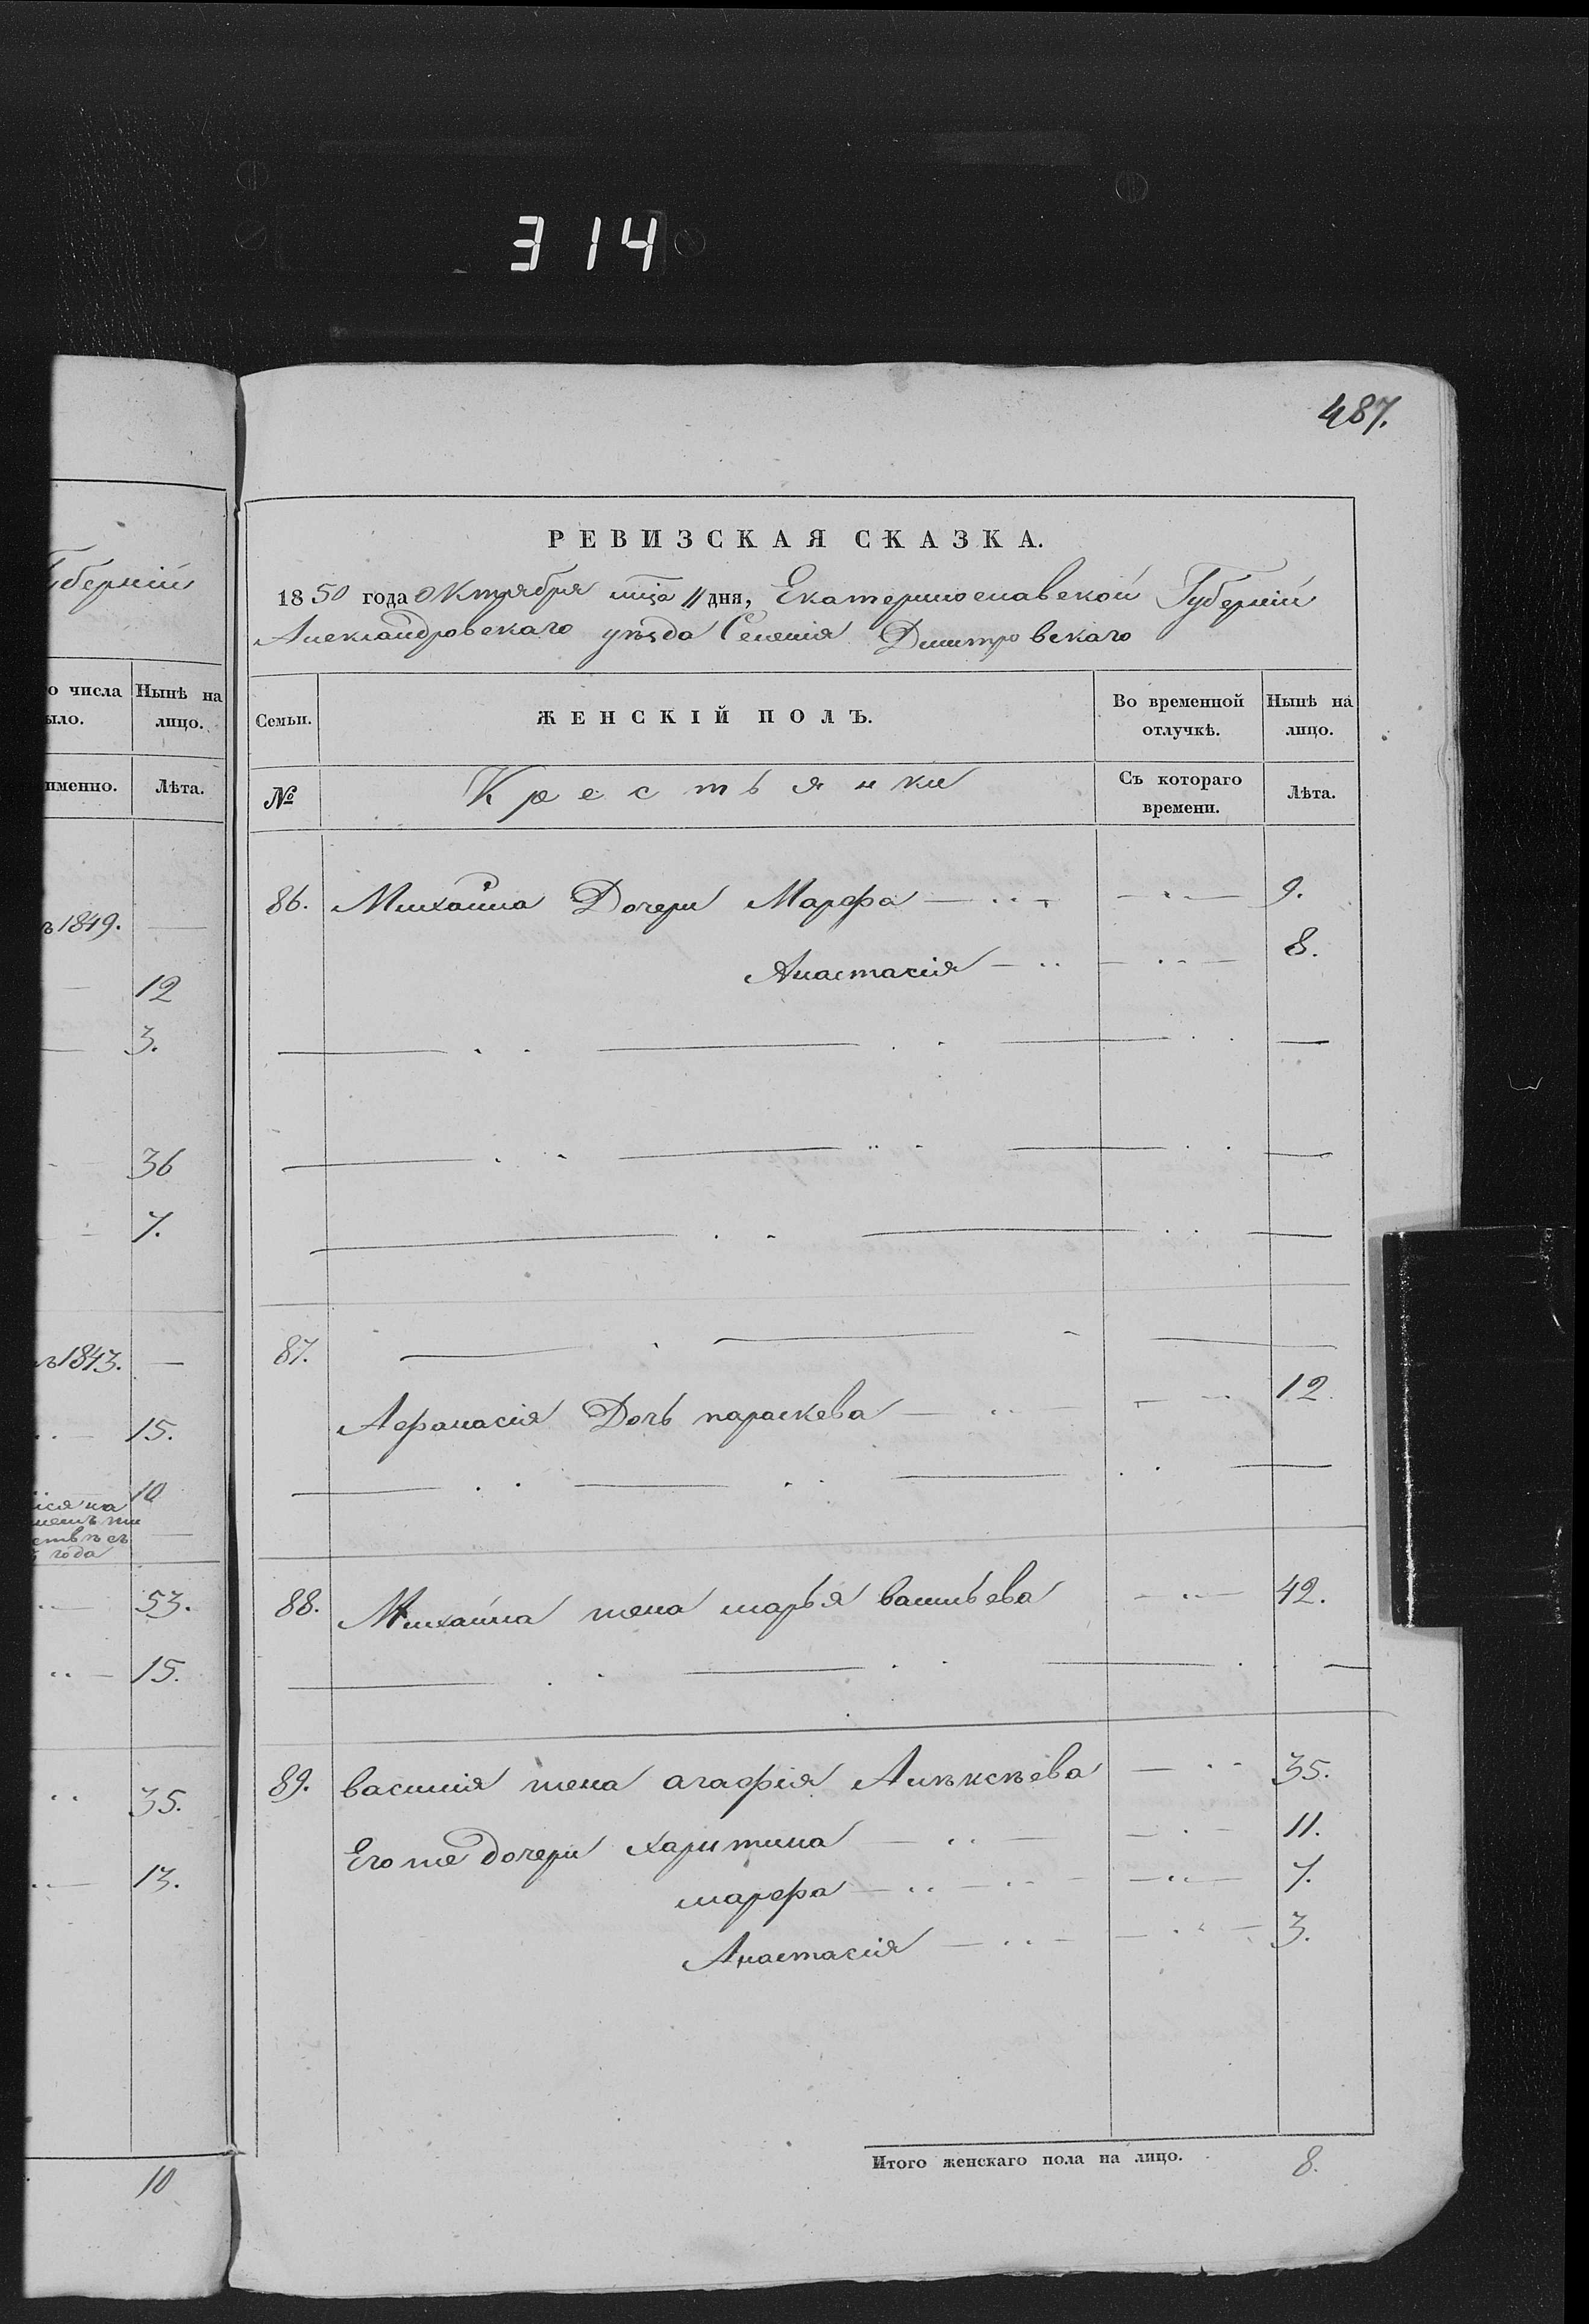 314
487.
Губерніи
о числа Нынѣ на
ыло. лицо.
именно. Лѣта.
ъ 1849. —
12
3.
36
7.
ъ 1843. —
15.
10
года
53.
15.
35.
13.
10
РЕВИЗСКАЯ СКАЗКА.
1850 года Октября мца 11 дня, Екатеринославской Губерніи
Александровскаго уѣзда Селенія Дмитровскаго
Семьи. ЖЕНСКІЙ ПОЛЪ. Во временной отлучкѣ. Нынѣ на лицо.
№ Крестьянки Съ котораго времени. Лѣта.
86. Михайла Дочери Марфа 9.
Анастасія 8.
87.
Афанасія Дочь параскева 12
88. Михайла жена марья васильева 42.
89. василія жена агафія Алѣксѣева 35.
Его же дочери харитина 11.
марфа 7.
Анастасія 3.
Итого женскаго пола на лицо. 8.